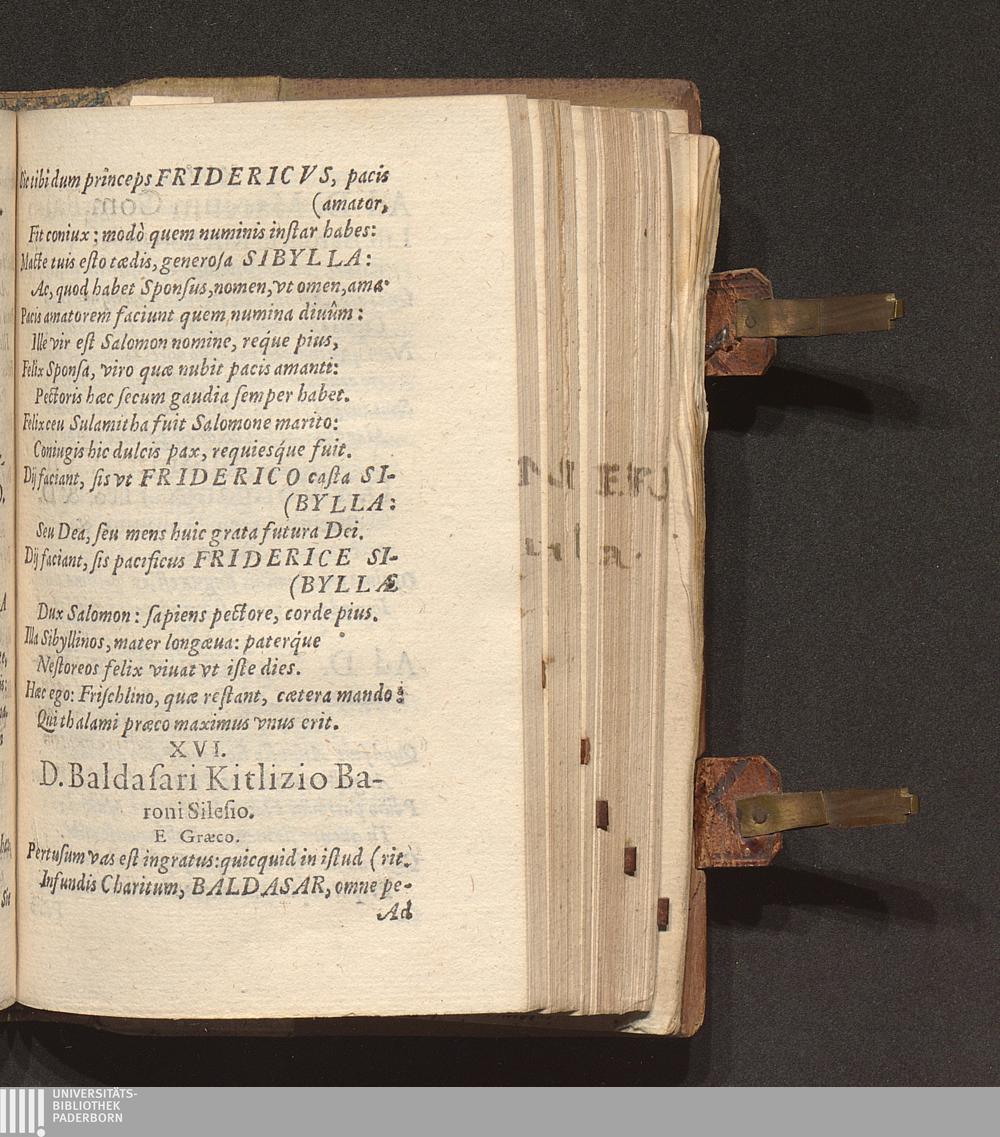 Sic tibi dum princeps FRIDERICVS, pacis
(amator,
Fit coniux; modò quem numinis inſtar habes:
Macte tuis eſto tædis, generoſa SIBYLLA:
Ac, quod habet Sponſus, nomen, vt omen, ama.
Pacis amatorem faciunt quem numina diuûm:
Ille vir eſt Salomon nomine, reque pius,
Felix Sponſa, viro quæ nubit pacis amanti:
Pectoris hæc ſecum gaudia ſemper habet.
Felix ceu Sulamitha fuit Salomone marito:
Coniugis hic dulcis pax, requieſque fuit.
Dij faciant, ſis vt FRIDERICO caſta SI-
(BYLLA:
Seu Dea, ſeu mens huic grata futura Dei.
Dij faciant, ſis pacificus FRIDERICE SI-
(BYLLÆ
Dux Salomon: ſapiens pectore, corde pius.
Illa Sibyllinos, mater longæua: paterque
Neſtoreos felix viuat vt iſte dies.
Hæc ego: Friſchlino, quæ reſtant, cætera mando:
Qui thalami præco maximus vnus erit.
XVI.
D. Baldaſari Kitlizio Ba-
roni Sileſio.
E Græco.
Pertuſum vas eſt ingratus: quicquid in iſtud (rit.
Infundis Charitum, BALDASAR, omne pe-
Ad
UNIVERSITÄTS-
BIBLIOTHEK
PADERBORN